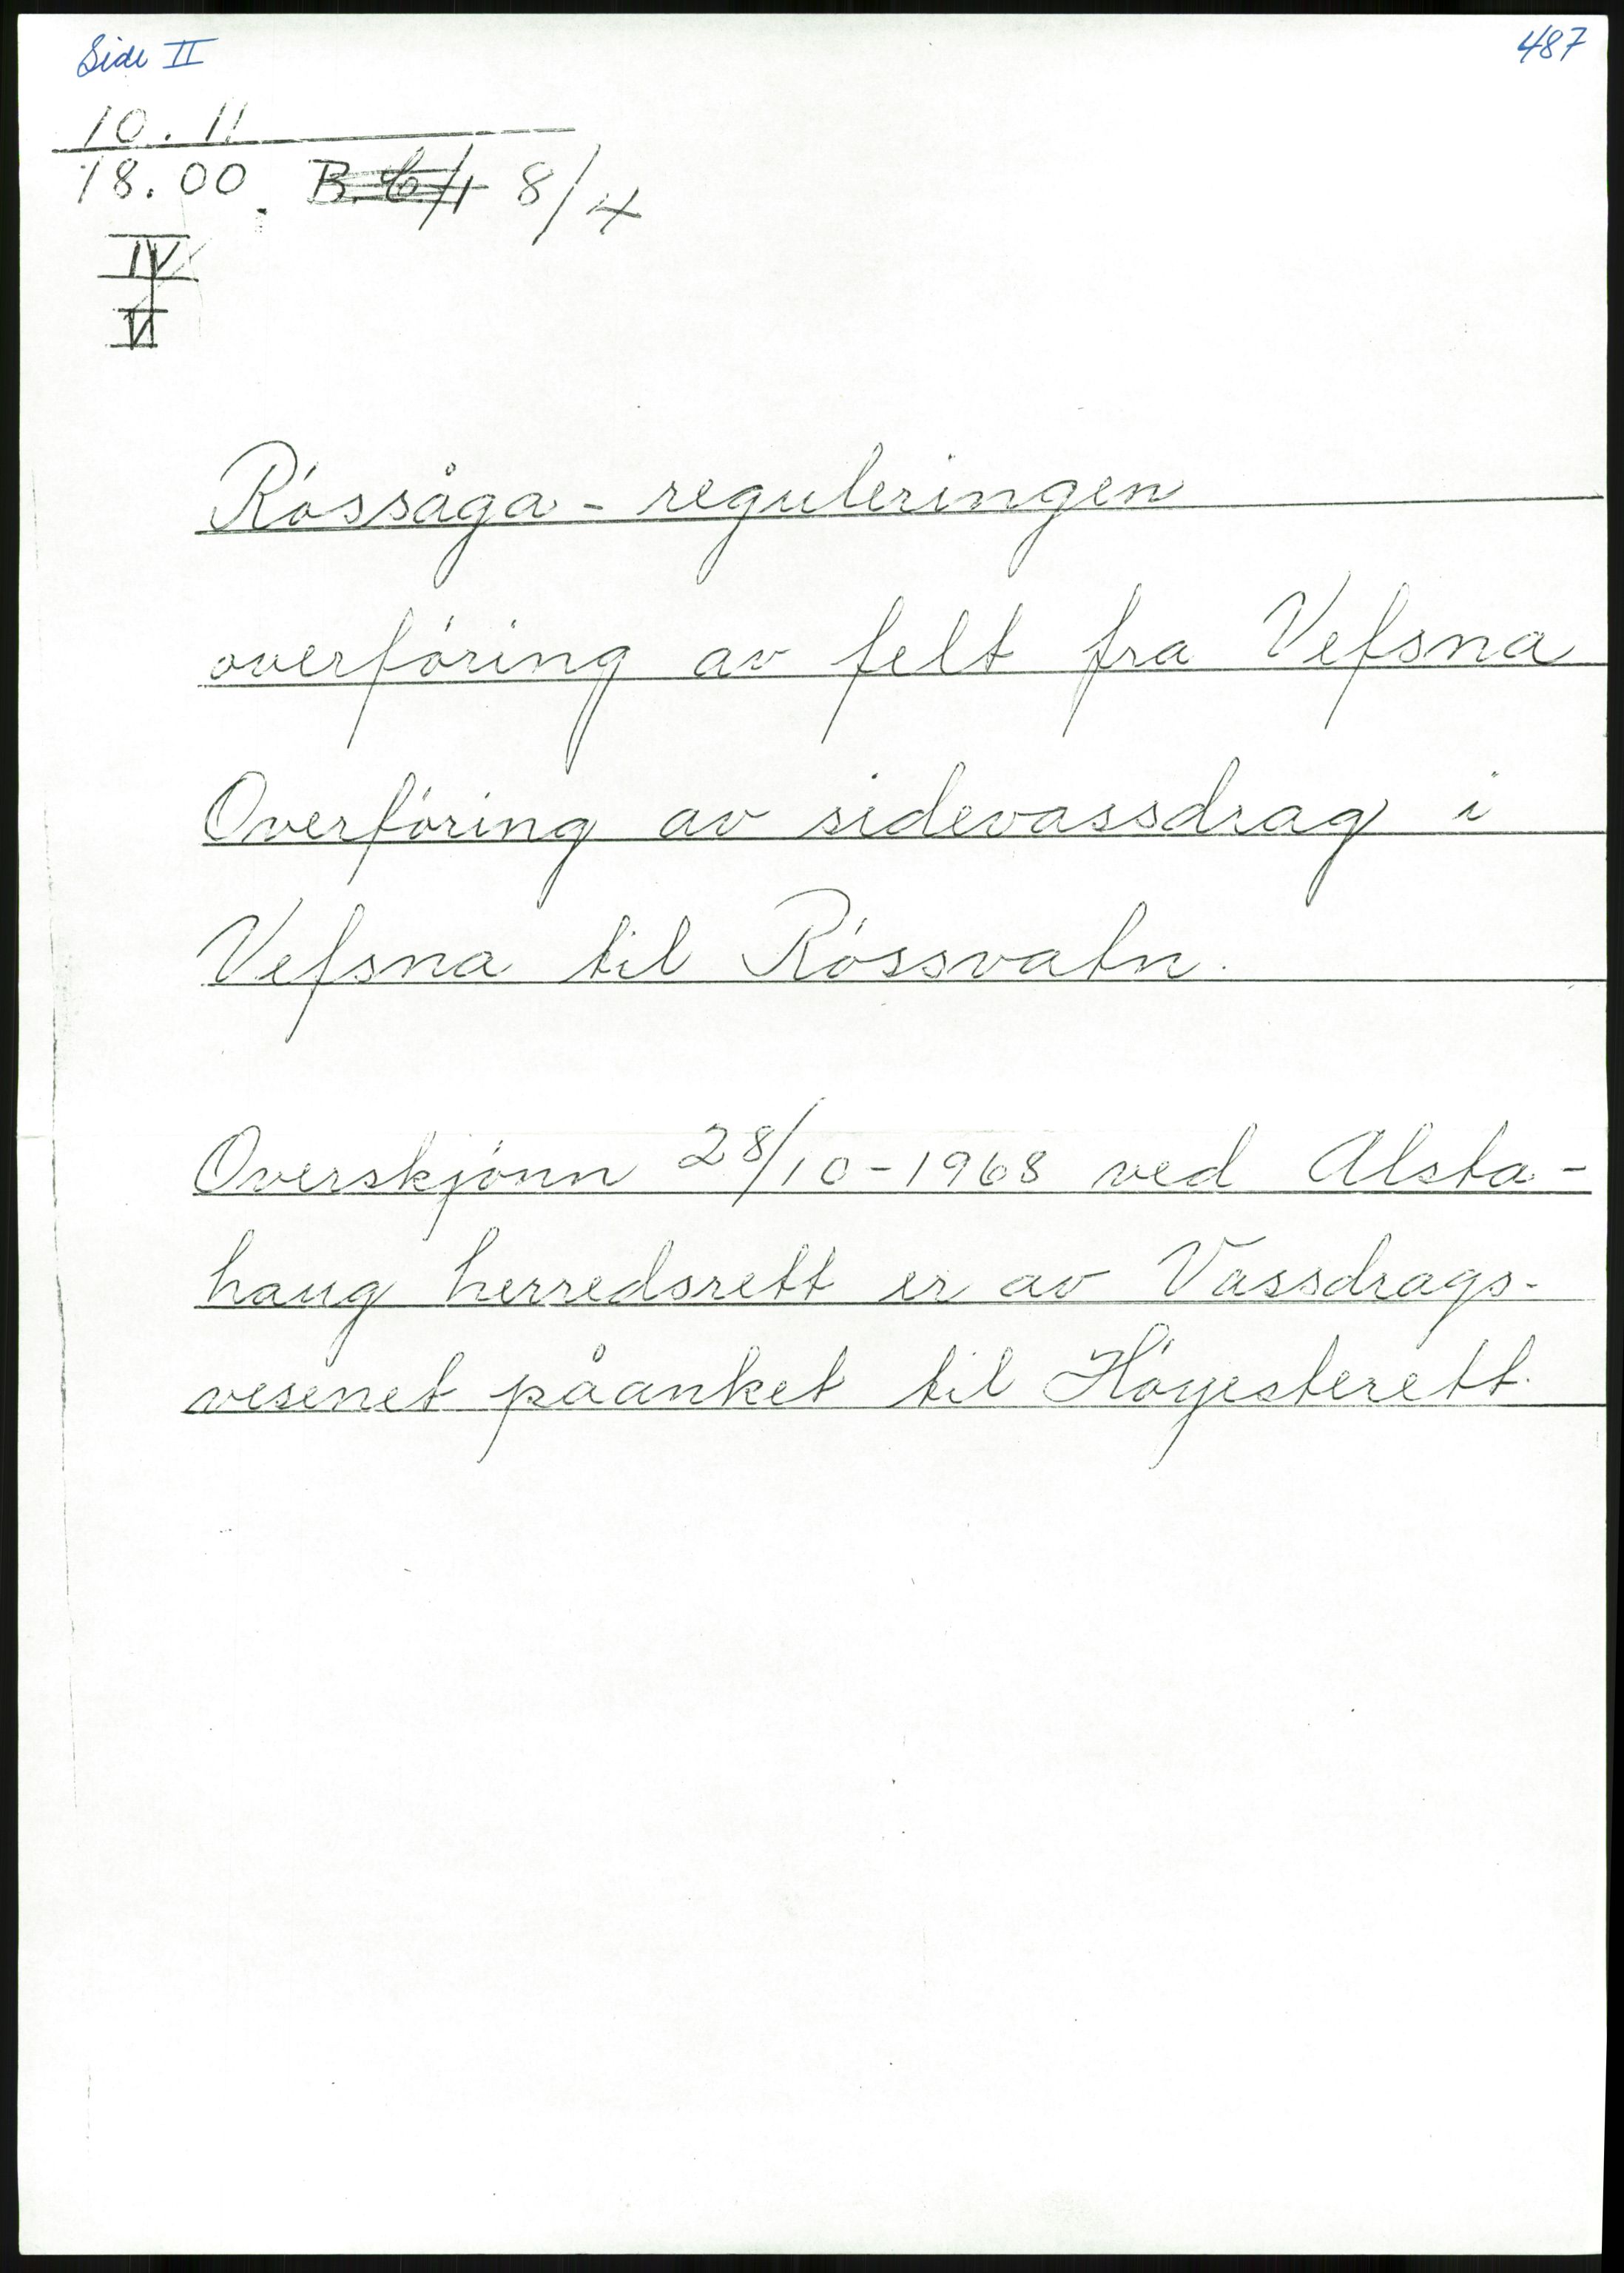 Side II 487
10.11
18.00. B. 8/4
IV
VI
Róssåga - reguleringen
overfóring av felt fra Vefsna
Overfóring av sidevassdrag i
Vefsna til Róssvatn.
Overskjónn 28/10-1968 ved Alsta-
haug herredsrett er av Vassdrags-
vesenet påanket til Hóyesterett.